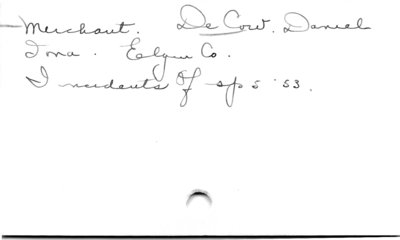 Merchant. De Cow, Daniel
Iona. Elgin Co.
Incidents of sp 5 '53.